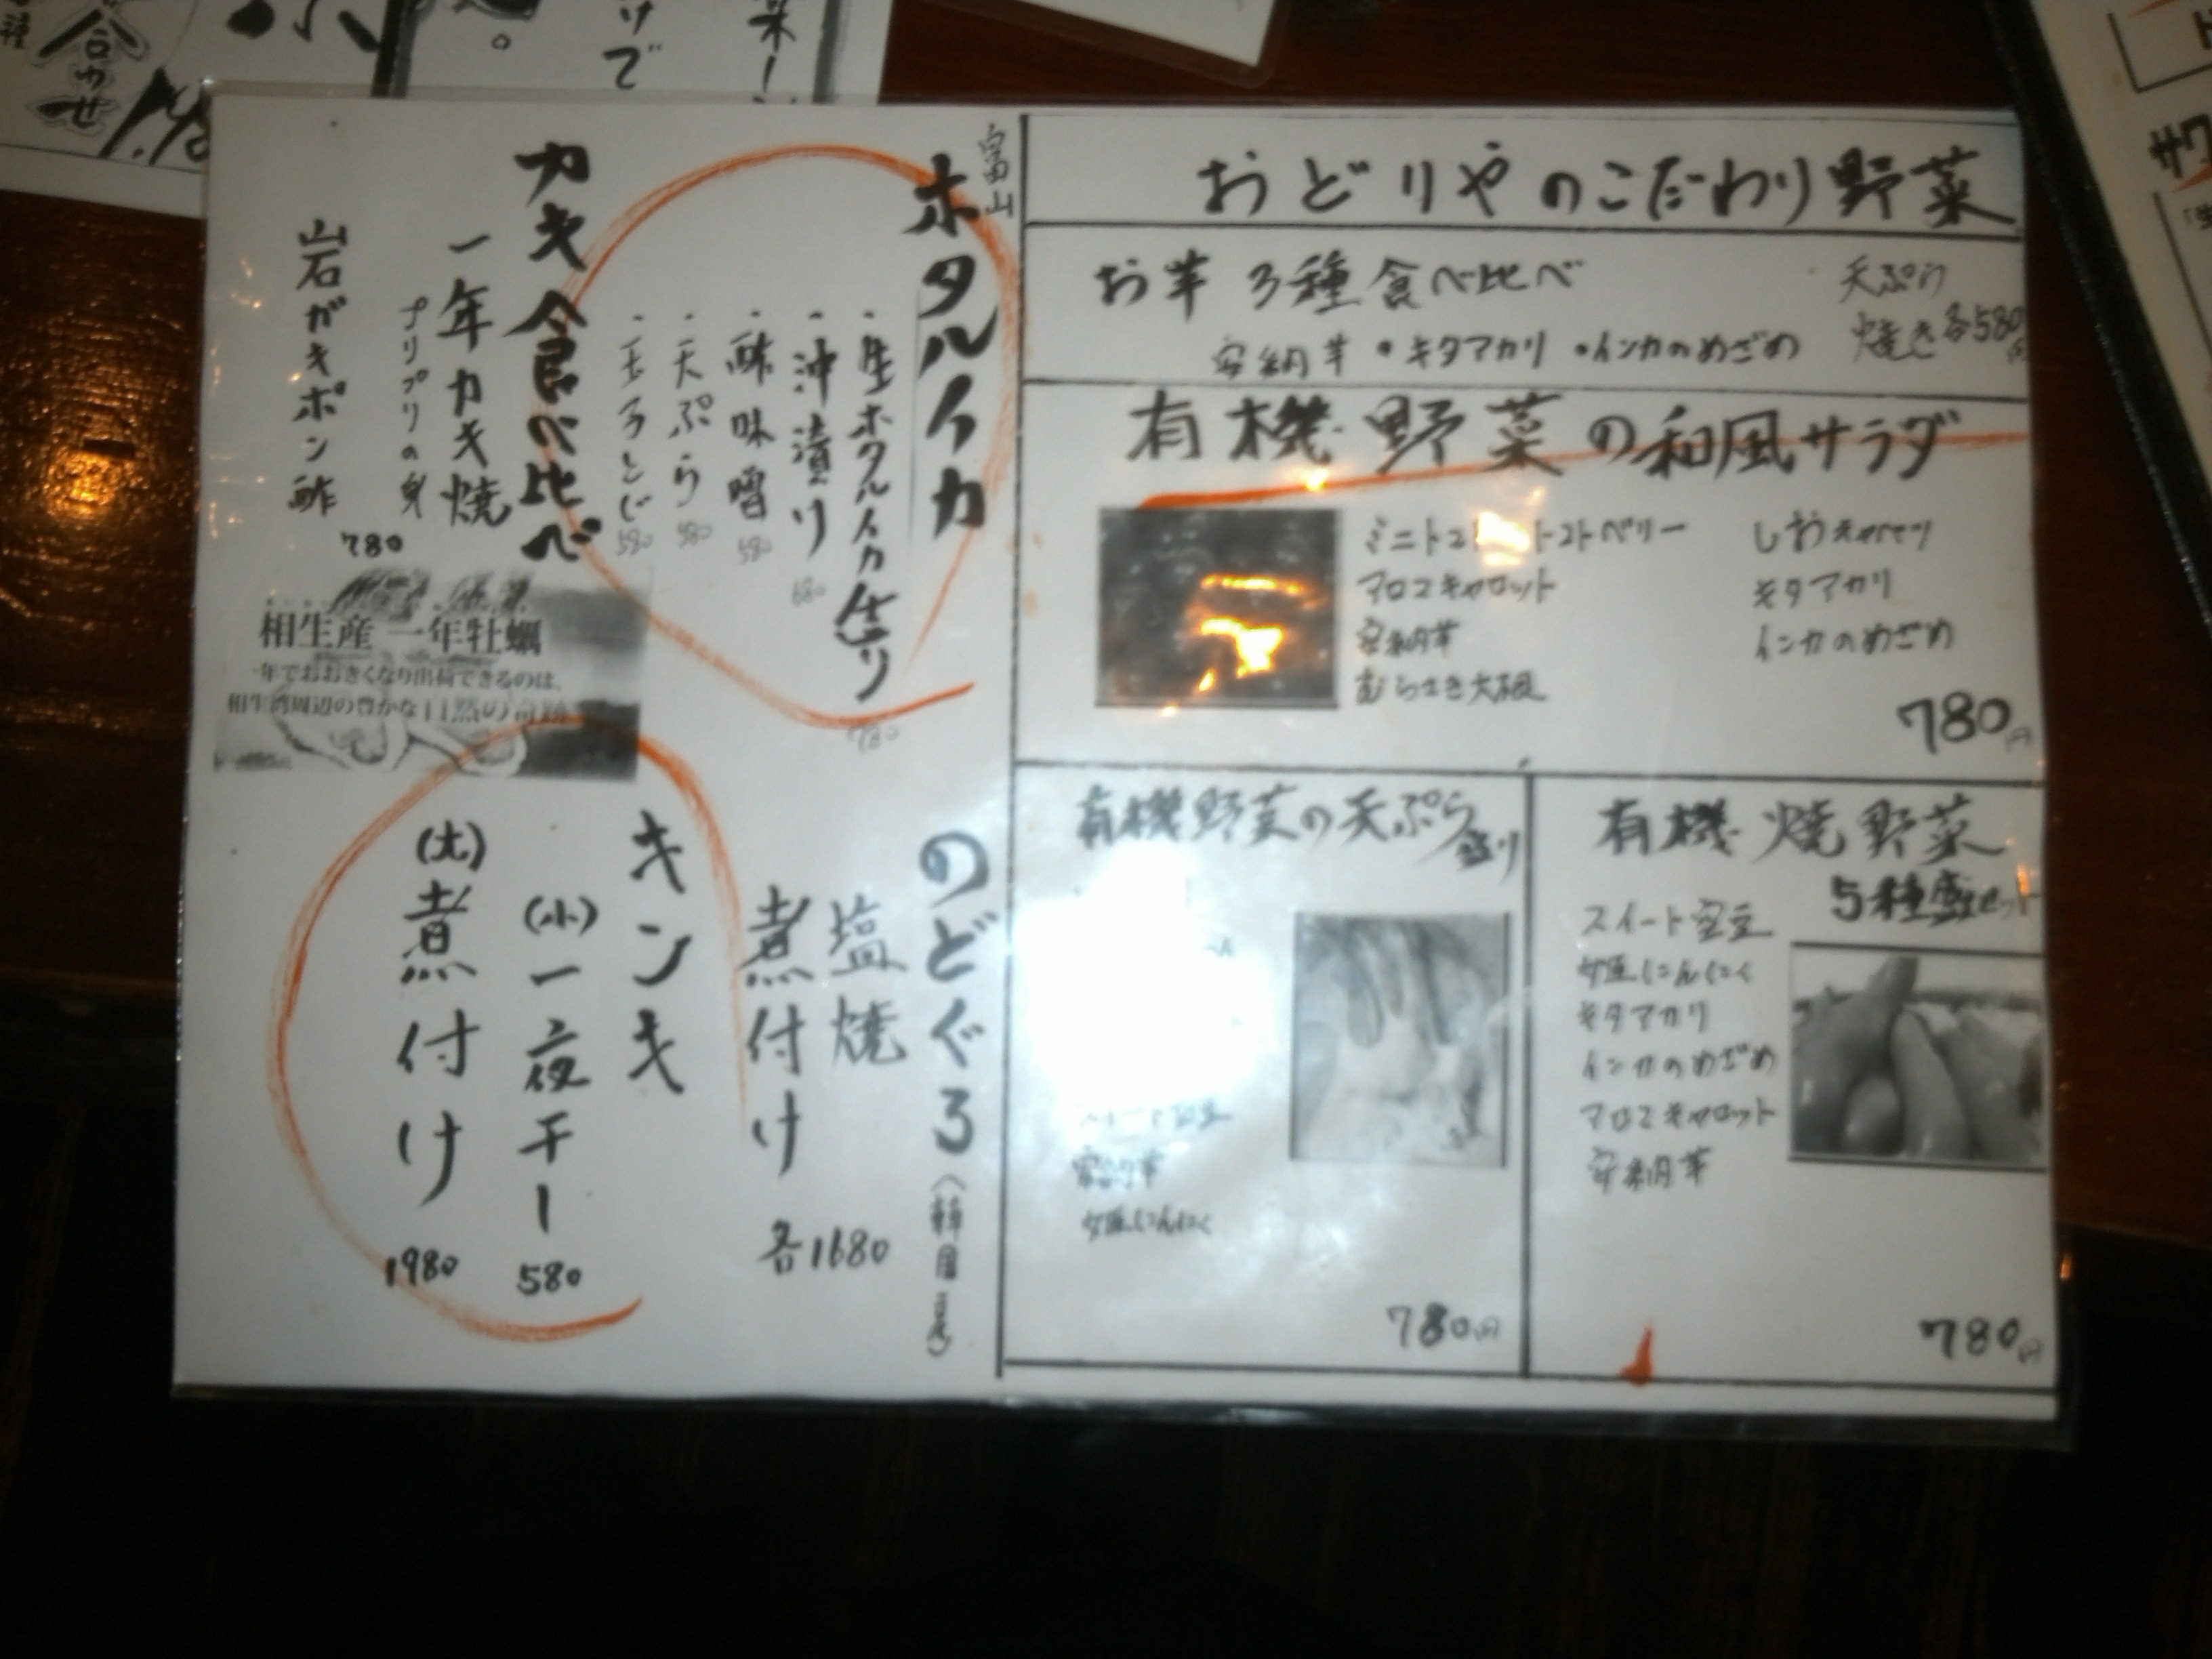 おどりやのこだわり野菜
お芋3種食べ比べ
安納芋・キタアカリ・インカのめざめ
天ぷら
焼き各580円
有機野菜の和風サラダ
トマトベリー
アロマキャロット
安納芋
むらさき大根
しおキャベツ
キタアカリ
インカのめざめ
780円
有機野菜の天ぷら盛り
安納芋
女医にんにく
780円
有機焼野菜
5種盛セット
スイート空豆
女医にんにく
キタアカリ
インカのめざめ
アロマキャロット
安納芋
780円
富山
ホタルイカ
・生ホタルイカ造り
780
・沖漬け
680
・酢味噌 580
・天ぷら 580
・玉子とじ 580
カキ食べ比べ
一年カキ焼
プリプリの身
岩ガキポン酢
780
相生産 一年牡蠣
一年でおおきくなり出荷できるのは、
相生湾周辺の豊かな自然の奇跡
のどぐろ
塩焼
煮付け
各1680
キンキ
(小)一夜干し
580
(大)煮付け
1980
合わせ